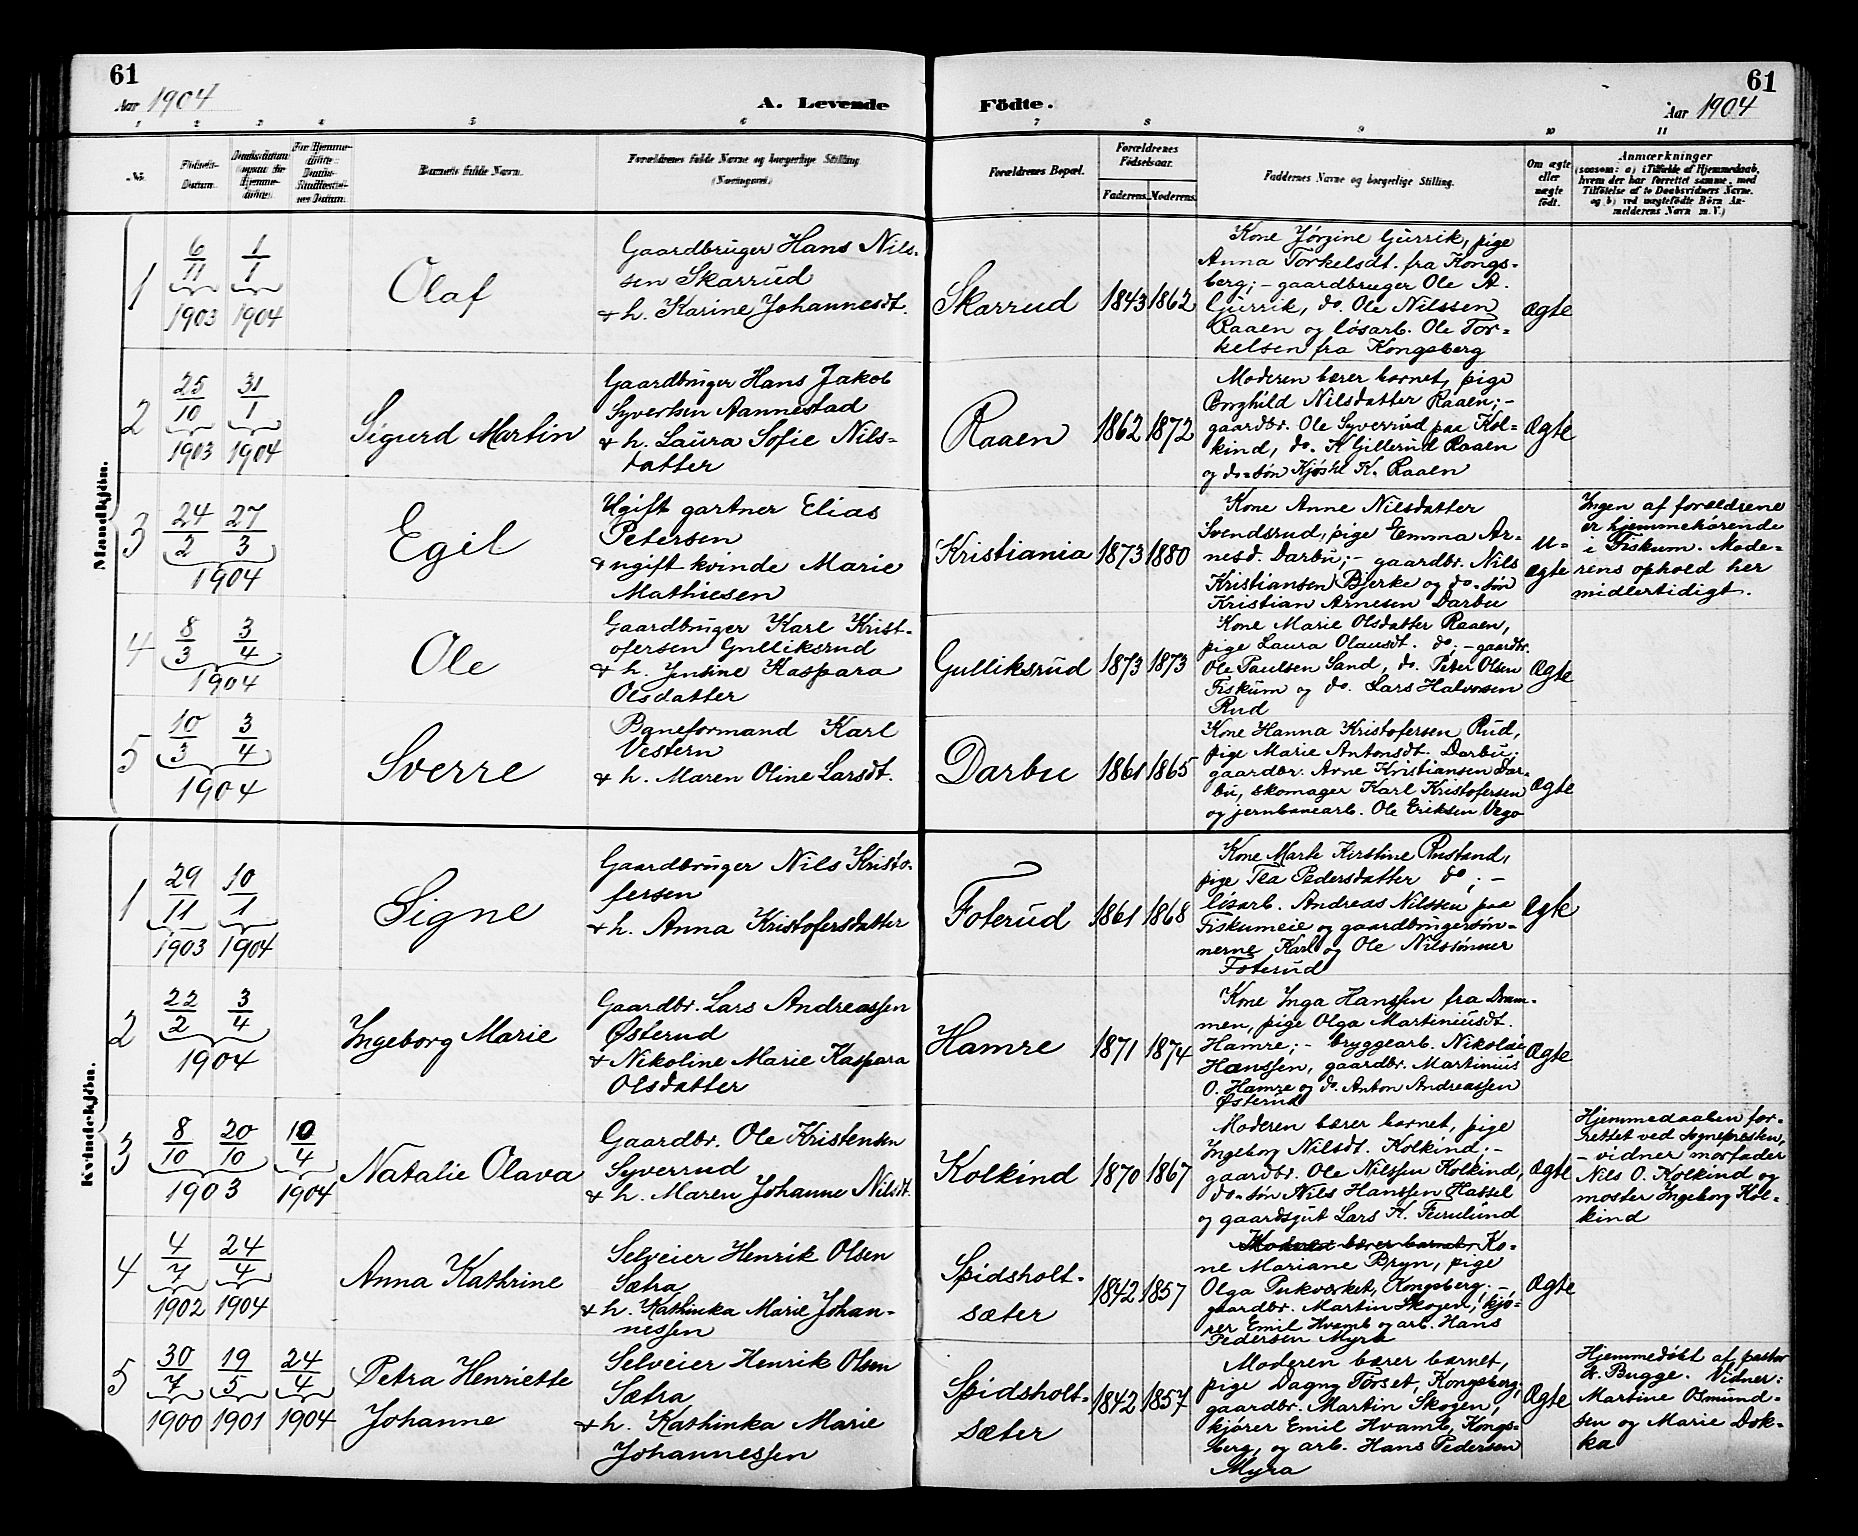 61
Aar 1904
A. Levende
1 2 3 4 5 6
No.
Fødsels-
Datum.
Barnets fulde Navn.
Forældrenes fulde Navne og borgerlige Stilling
(Næringsvei)
Mandkjön.
1
6/11 1903
1/1 1904
Olaf
Gaardbruger Hans Nils-
sen Skarrud
& h. Karine Johannesdt.
2
25/10 1903
31/1 1904
Sigurd Martin
Gaardbruger Hans Jakob
Syversen Aannestad
& h. Laura Sofie Nils-
datter
3
24/2 27/3
1904
Egil
Ugift gartner Elias
Petersen
& ugift kvinde Marie
Mathiesen
4
8/3 3/4
1904
Ole
Gaardbruger Karl Krist-
ofersen Gulliksrud
& h. Jensine Kaspara
Olsdatter
5
10/3 3/4
1904
Sverre
Baneformand Karl
Vestern
& h. Maren Oline Larsdt.
Kvindekjön.
1
29/11 1903
10/1 1904
Signe
Gaardbruger Nils Kristo-
fersen
& h. Anna Kristofersdatter
2
22/2 3/4
1904
Ingeborg Marie
Gaardbr. Lars Andreassen
Østerud
& Nikoline Marie Kaspara
Olsdatter
3
8/10 20/10 1903
10/4 1904
Natalie Olava
Gaardbr. Ole Kristensen
Syverrud
& h. Maren Johanne Nilsdt.
4
4/7 1902
24/4 1904
Anna Kathrine
Selveier Henrik Olsen
Sætra
& h. Kathinka Marie Johan-
nessen
5
30/7 1900
19/5 1901
24/4 1904
Petra Henriette
Johanne
Selveier Henrik Olsen
Sætra
& h. Kathinka Marie
Johannessen
61
Födte.
Aar 1904
7 8 9 10 11
Forældrenes Bopæl.
Forældrenes
Fødselsaar.
Faderens. Moderens.
Faddernes Navne og borgerlige Stilling.
Om ægte
eller
uægte
født.
Anmærkninger
(saasom: a) i Tilfælde af Hjemmedaab,
hvem der har forrettet samme, med
Tilföielse af to Daabsvidners Navne,
og b) ved uægtefödte Börn An-
melderens Navn m. V.)
Skarrud
1843 1862
Kone Jørgine Gurrik, pige
Anna Torkelsdt. fra Kongs-
berg; - gaardbruger Ole A.
Gurrik, do. Ole Nilssen
Raaen og løsarb. Ole Tor-
kelsen fra Kongsberg
ægte
Raaen
1862 1872
Moderen bærer barnet, pige
Borghild Nilsdatter Raaen; -
gaardbr. Ole Syverrud paa Kol-
kind, do. K Gillerud Raaen
og do-søn K. Raaen
Ægte
Kristiania
1873 1880
Kone Anne Nilsdatter
Svendsrud, pige Emma Ar-
nesd. Darbu; - gaardbr. Nils
Kristiansen Bjerke og do-søn
Kristian Arnesen Darbu
u-
ægte
Ingen af forældrene
er hjemmehørende
i Fiskum. Mode-
rens ophold her
midlertidigt.
Gulliksrud
1873 1873
Kone Marie Olsdatter Raaen,
pige Laura Olausdt. do; - gaardbr.
Ole Paulsen Sand, do. Peter Olsen
Fiskum og do. Lars Halvorsen
Rud
Ægte
Darbu
1861 1865
Kone Hanna Kristofersen Rud,
pige Marie Antonsdt. Darbu;
gaardbr. Arne Kristiansen Dar-
bu, skomager Karl Kristofersen
og jernbanearb. Ole Eriksen Vego
Ægte
Foterud
1861 1868
Kone Marte Kirstine Rustand,
pige Tea Pedersdatter do; -
løsarb. Andreas Nilssen paa
Fiskumeie og gaardbrugersøn-
nerne Karl og Ole Nilssønner
Foterud
Ægte
Hamre
1871 1874
Kone Inga Hanssen fra Dram-
men, pige Olga Martiniusdt.
Hamre; - bryggearb. Nikolai
Hanssen, gaardbr. Martinius
O. Hamre og do. Anton Andreassen
Østerud
Ægte
Kolkind
1870 1867
Moderen bærer barnet, pige
Ingeborg Nilsdt. Kolkind; -
gaardbr. Ole Nilssen Kolkind,
do-søn Nils Hanssen Hassel
og gaardsgut Lars K. Furulund
Ægte
Hjemmedaaben for-
rettet ved sognepresten,
- vidner morfader
Nils O. Kolkind og
moster Ingeborg Kol-
kind
Spidsholt-
sæter
1842 1857
Moderen bærer barnet, Ko-
ne Mariane Bryn, pige
Olga Pukværket, Kongsberg; -
gaardbr. Martin Skogen, kjø-
rer Emil Hvamb og arb. Hans
Pedersen Myra
Ægte
Spidsholt-
sæter
1842 1857
Moderen bærer barnet,
pige Dagny Torset, Kongsberg;
gaardbr. Martin Skogen,
kjører Emil Hvamb, Kongs-
berg, og arb. Hans Pedersen
Myra
Ægte
Hjemmedøbt af pastor
Bugge. Vidner:
Martine Osmund-
sen og Marie Dok-
ka